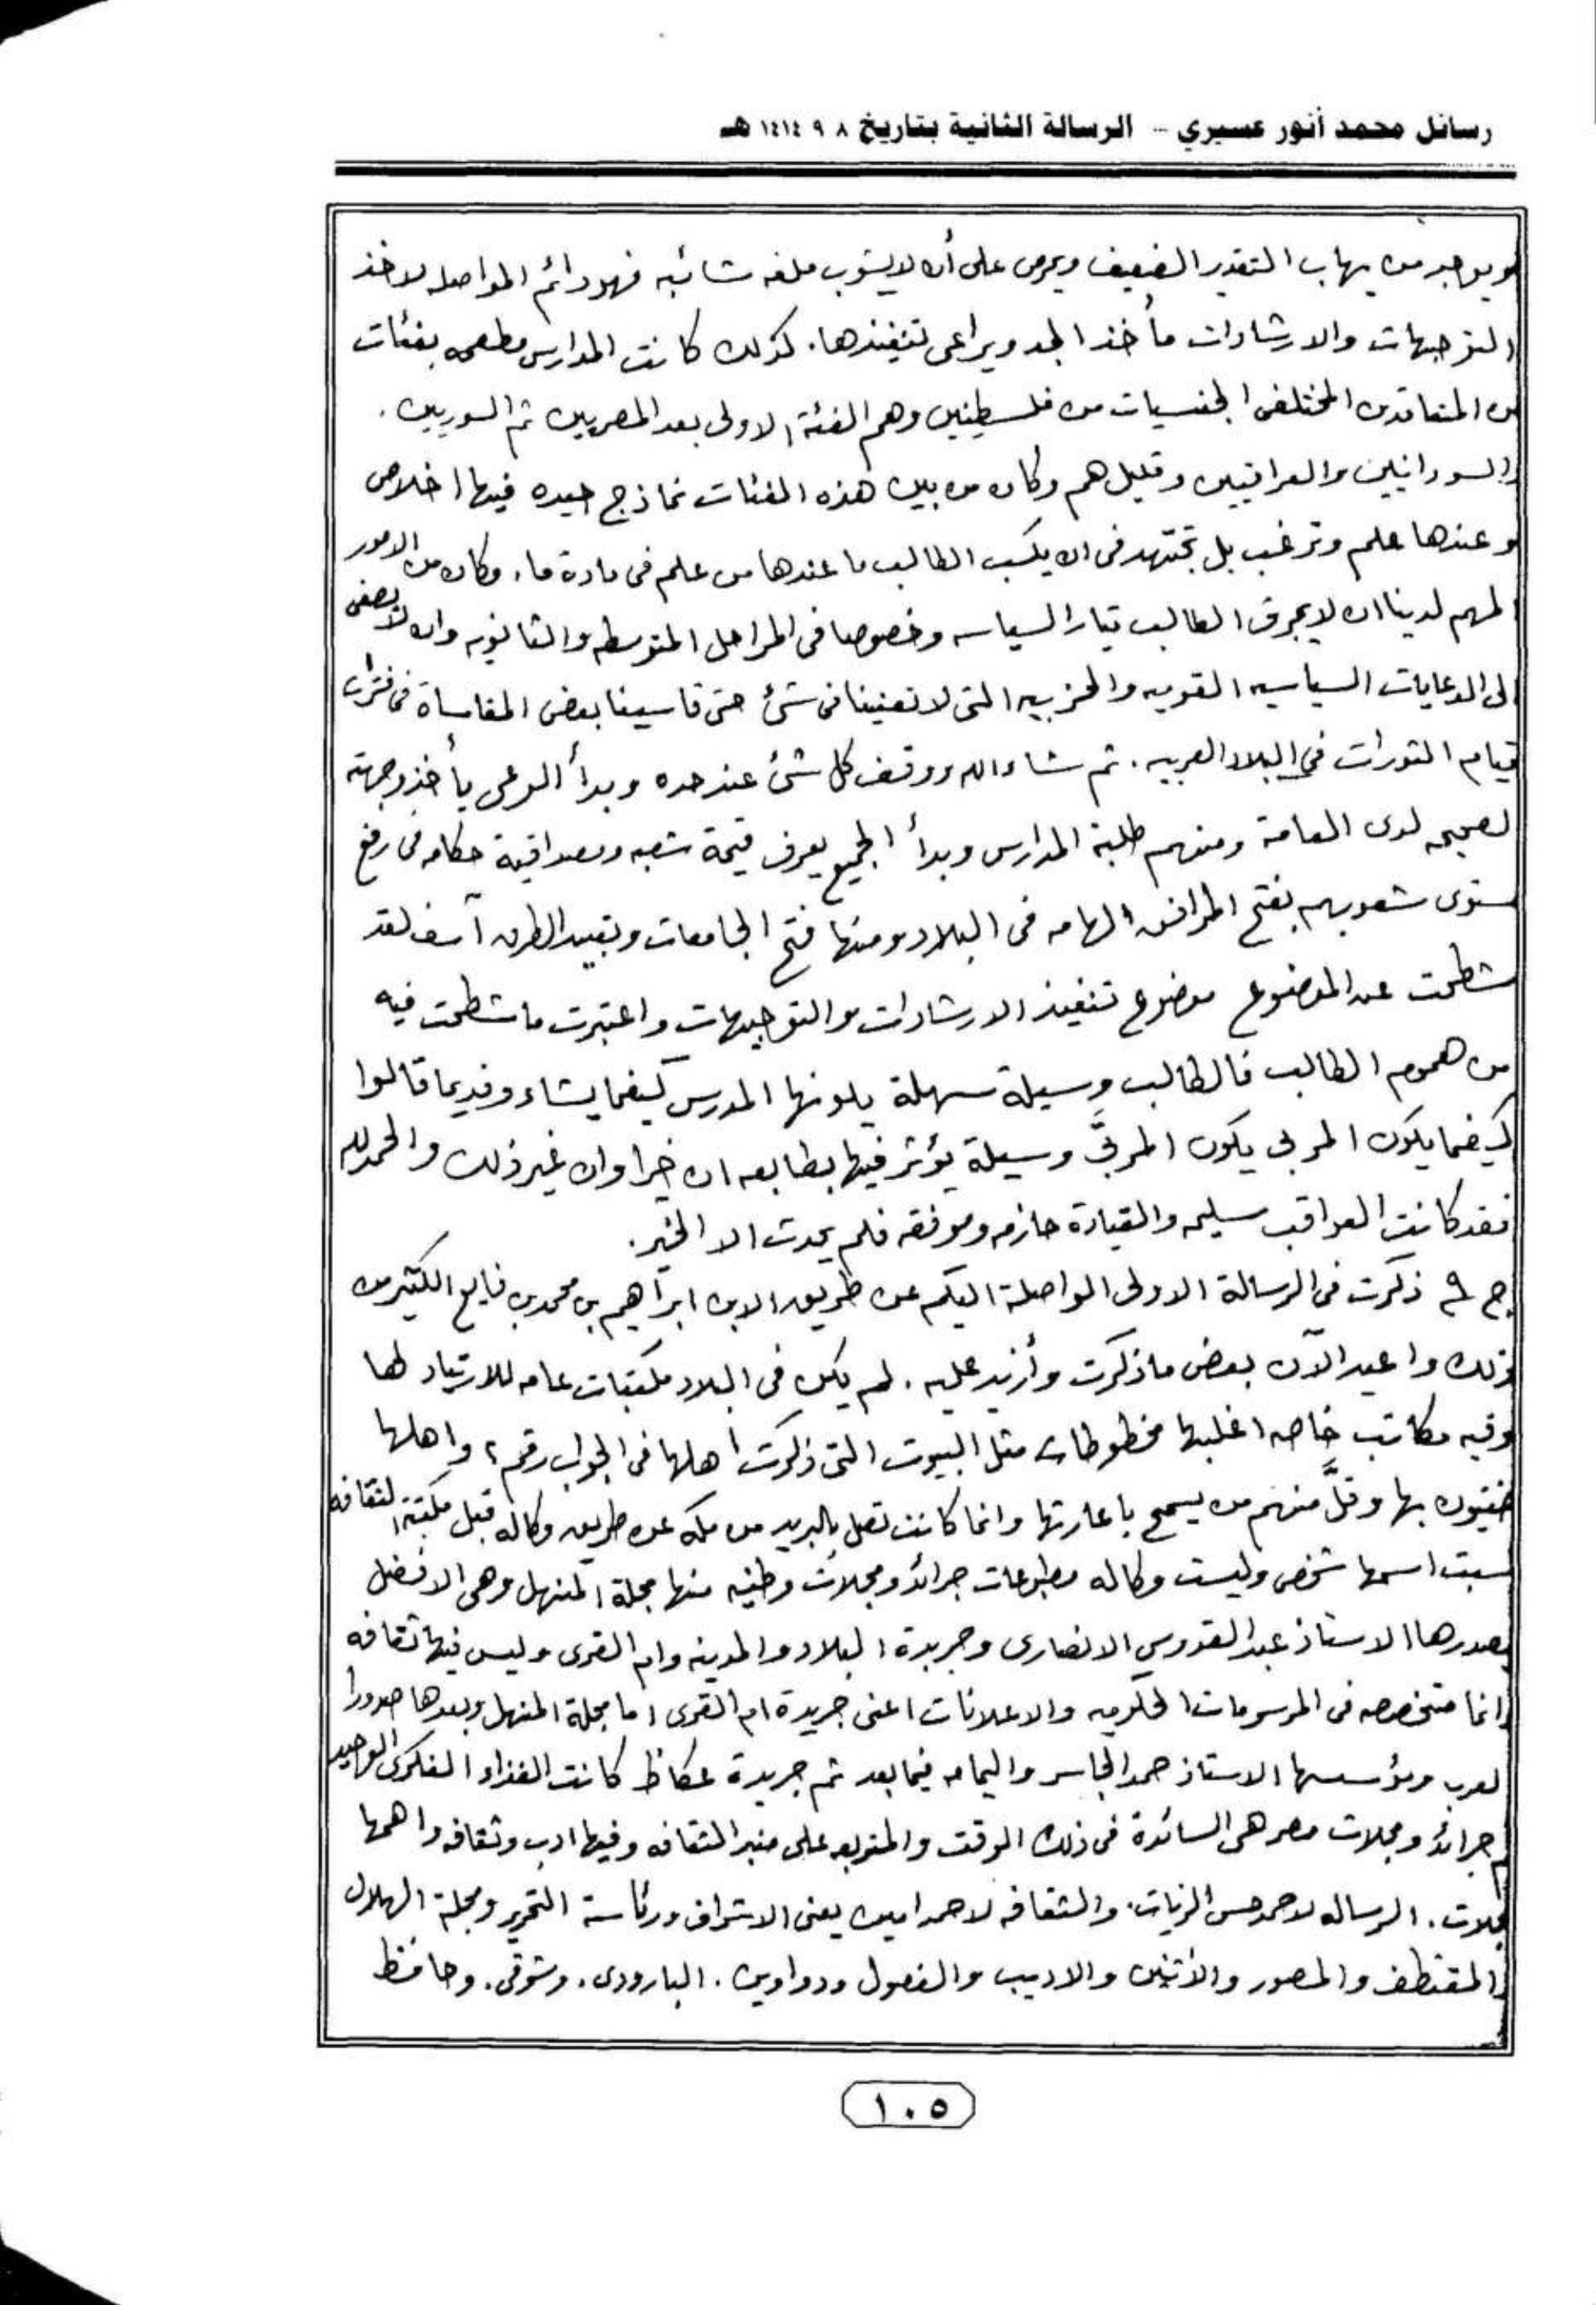 رسائل محمد أنور عسيري - الرسالة الثانية بتاريخ ٨ ٩ ١٤١٤ هـ
ويوجد من يهاب التقدير الضعيف ويحرص على أن لا يشوب ملفه شائبه فهو دائم المواصله لاخذ
التوجيهات والارشادات مأخذ الجد ويراعى تنفيذها. كذلك كانت المدارس مطعمه بفئات
من المتعاقدين المختلفى الجنسيات من فلسطينين وهم الفئة الاولى بعد المصريين ثم السوريين.
والسودانيين والعراقيين وقليل هم وكان من بين هذه الفئات نماذج جيده فيها اخلاص
وعندها علم وترغب بل تجتهد فى ان يكسب الطالب ما عندها من علم فى مادة ما. وكان من الامور
المهم لدينا ان لا يجرف الطالب تيار السياسه وخصوصا فى المراحل المتوسطه والثانويه وان لا يصغى
الى الدعايات السياسيه القوميه والحزبيه التى لا تعنينا فى شئ حتى قاسينا بعض المقاساة فى فترات
قيام الثورات في البلاد العربيه. ثم شاء الله ووقف كل شئ عند حده وبدأ الوعى يأخذ وجهته
لصحيحه لدى العامة ومنهم طلبة المدارس وبدأ الجميع يعرف قيمة شعبه ومصداقية حكامه فى رفع
مستوى شعوبهم بفتح المرافق الهامه فى البلاد ومنها فتح الجامعات وتعبيد الطرق آسف لقد
شطحت عن الموضوع موضوع تنفيذ الارشادات والتوجيهات واعتبرت ما شطحت فيه
من هموم الطالب فالطالب وسيلة سهلة يلونها المدرس كيفما يشاء وقديما قالوا
كيفما يكون المربى يكون المربَّى وسيلة يؤثر فيها بطابعه ان خيرا وان غير ذلك والحمد لله
فقد كانت العواقب سليمه والقيادة حازمه وموفقه فلم يحدث الا الخير.
ج ٩ ذكرت في الرسالة الاولى الواصلة اليكم عن طريق الابن ابراهيم بن محمد بن فايع الكثير من
ذلك واعيد الآن بعض ما ذكرت وأزيد عليه. لم يكن فى البلاد مكتبات عامه للارتياد لها
وفيه مكاتب خاصه اغلبها مخطوطات مثل البيوت التى ذكرت اهلها فى الجواب رقم ٢ واهلها
ضنينون بها وقلَّ منهم من يسمح باعارتها وانما كانت تصل بالبريد من مكه عن طريق وكاله قبل مكتبة الثقافه
نسيت اسمها شخص وليست وكاله مطبوعات جرائد ومجلات وطنيه منها مجلة المنهل وهى الافضل
يصدرها الاستاذ عبد القدوس الانصارى وجريدة البلاد والمدينه وام القرى وليس فيها ثقافه
وانما متخصصه فى المرسومات الحكوميه والاعلانات اعنى جريدة ام القرى اما مجلة المنهل وبعدها صدورا
لعرب ومؤسسها الاستاذ حمد الجاسر واليمامه فيما بعد ثم جريدة عكاظ كانت الغذاء الفكرى الوحيد
ثم جرائد ومجلات مصر هى السائدة فى ذلك الوقت والمتربعه على منبر الثقافه وفيها ادب وثقافه واهمها
مجلات. الرساله لاحمد حسن الزيات. والثقافه لاحمد امين يعنى الاشراف ورئاسة التحرير ومجلة الهلال
والمقتطف والمصور والاثنين والاديب والفصول ودواوين. البارودى. وشوقى. وحافظ
١٠٥